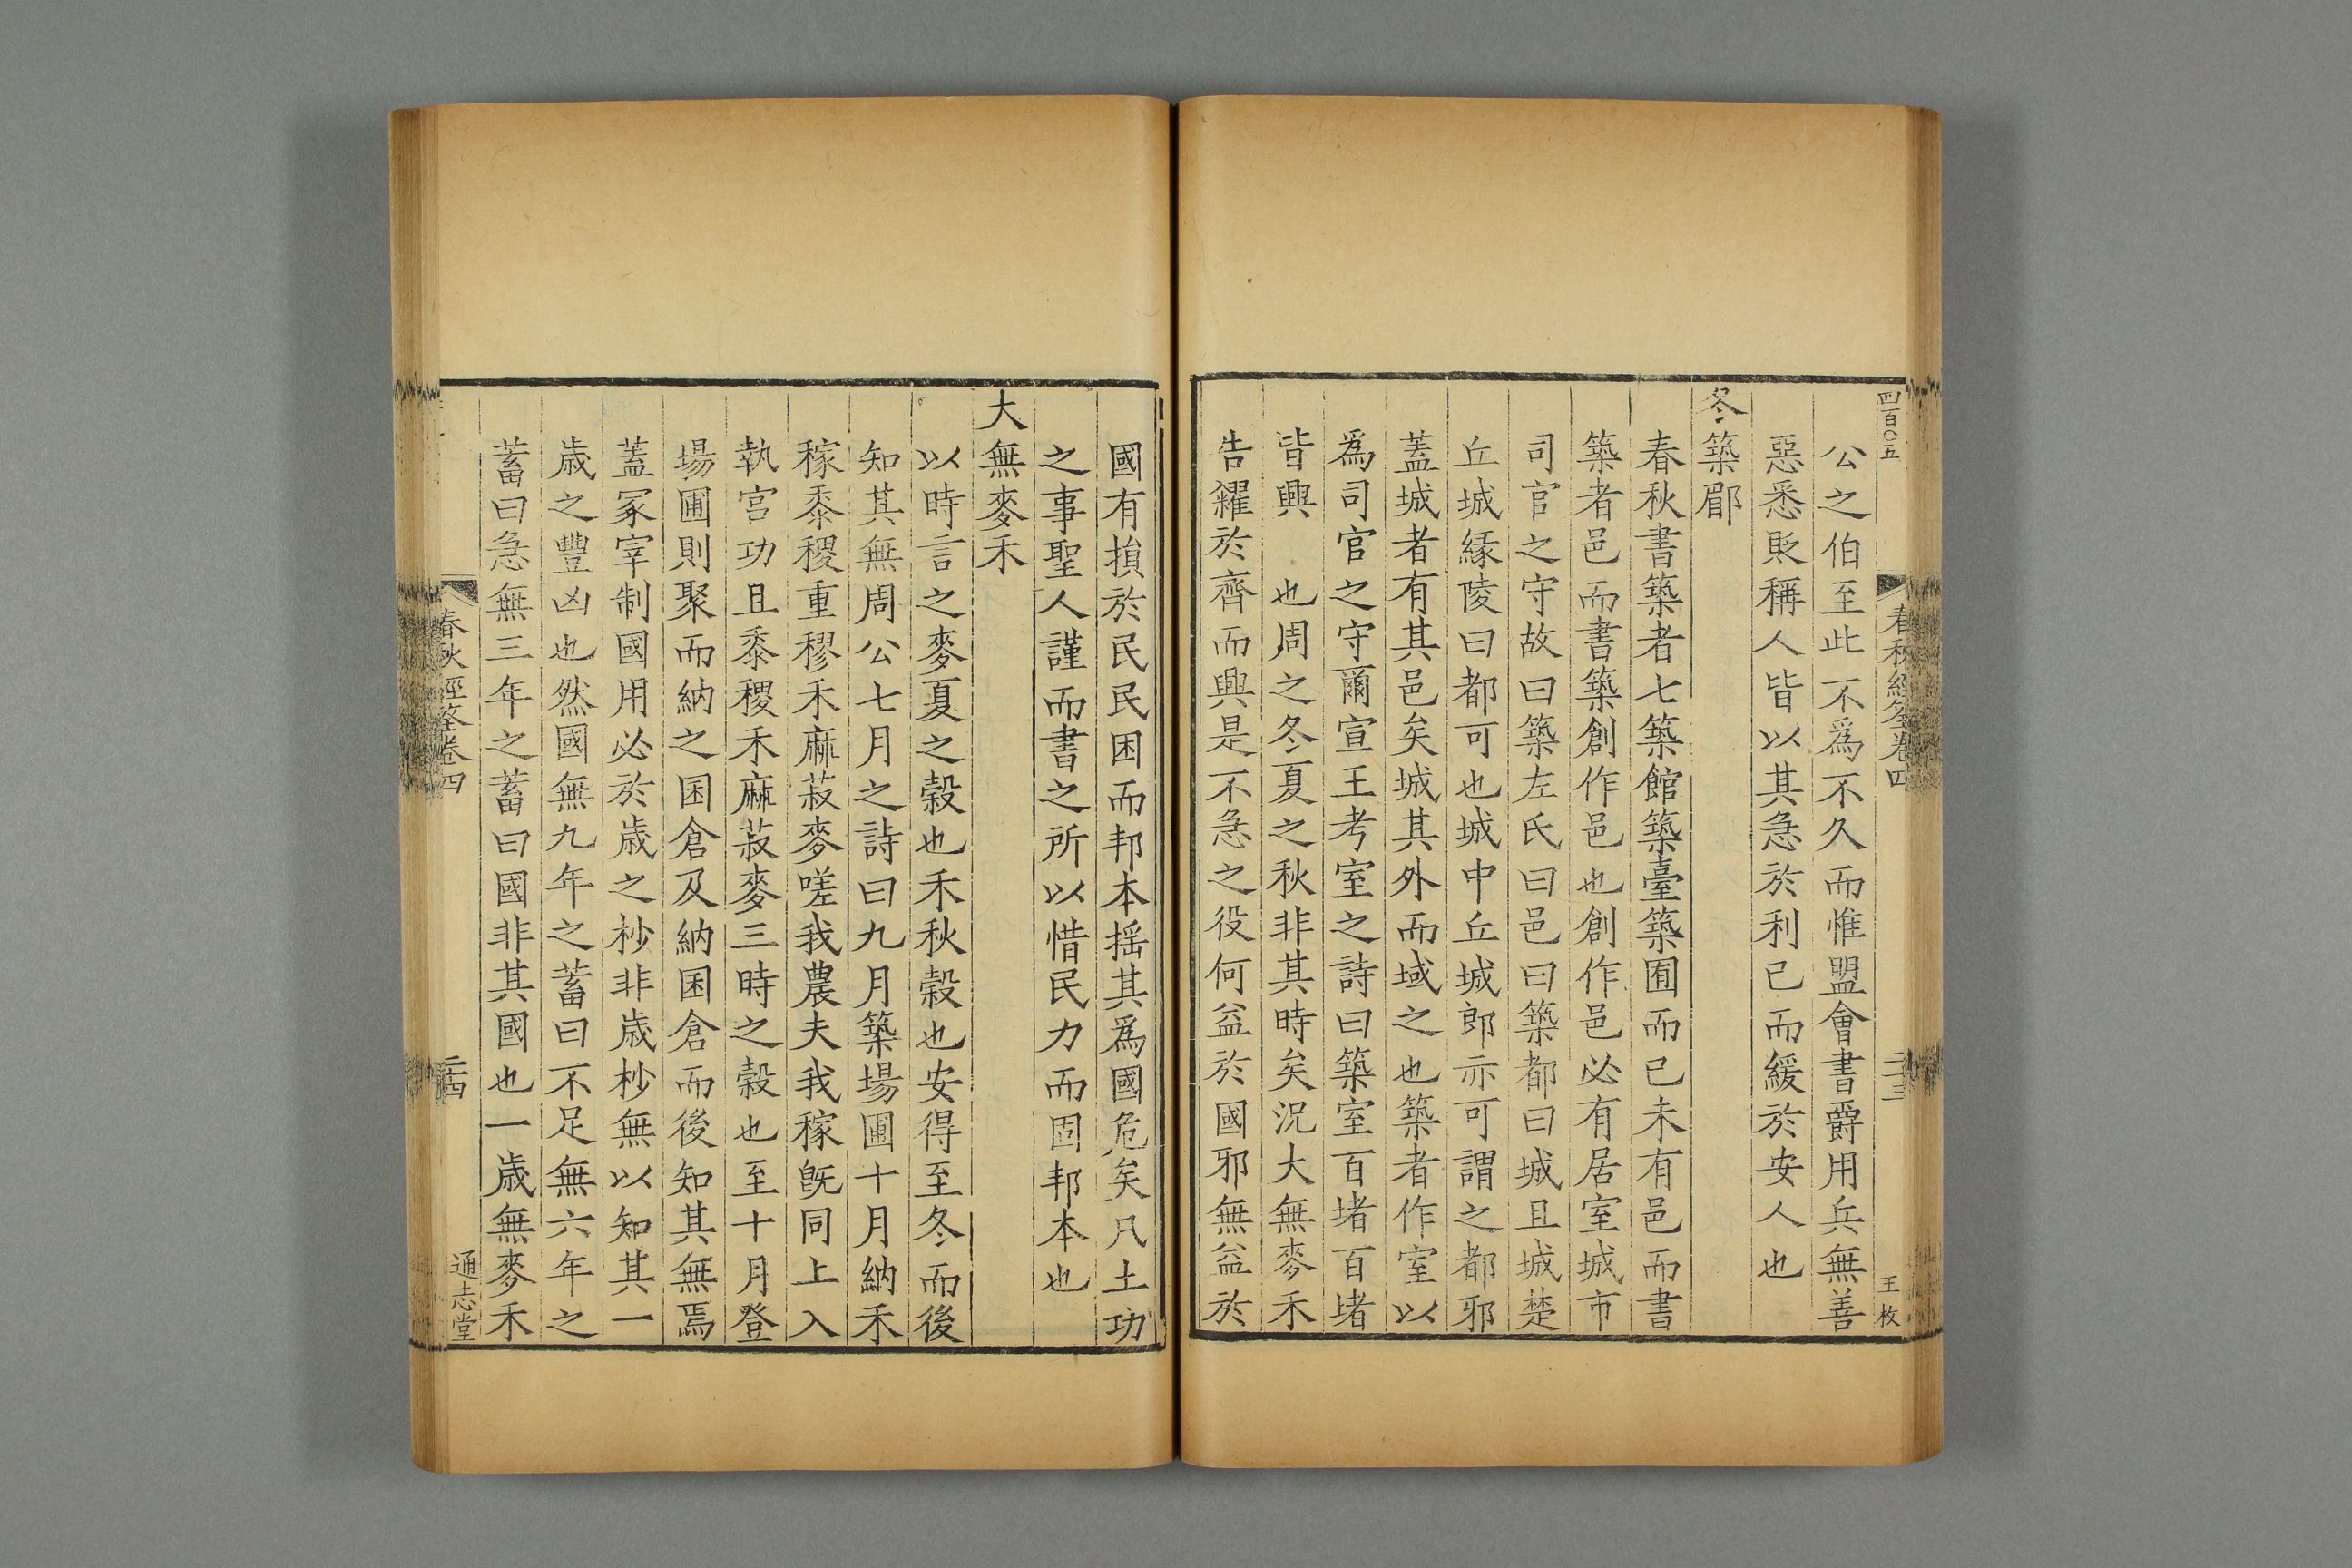 四百〇五
春秋經筌卷四
二十三
王枚
公之伯至此不爲不久而惟盟會書爵用兵無善
惡悉貶稱人皆以其急於利己而緩於安人也
冬築郿
春秋書築者七築館築臺築囿而已未有邑而書
築者邑而書築創作邑也創作邑必有居室城市
司官之守故曰築左氏曰邑曰築都曰城且城楚
丘城緣陵曰都可也城中丘城郎亦可謂之都邪
蓋城者有其邑矣城其外而域之也築者作室以
爲司官之守爾宣王考室之詩曰築室百堵百堵
皆興 也周之冬夏之秋非其時矣況大無麥禾
告糴於齊而興是不急之役何益於國邪無益於
國有損於民民困而邦本揺其爲國危矣凡土功
之事聖人謹而書之所以惜民力而固邦本也
大無麥禾
以時言之麥夏之榖也禾秋榖也安得至冬而後
知其無周公七月之詩曰九月築場圃十月納禾
稼黍稷重穋禾麻菽麥嗟我農夫我稼旣同上入
執宮功且黍稷禾麻菽麥三時之榖也至十月登
場圃則聚而納之囷倉及納囷倉而後知其無焉
蓋冢宰制國用必於歳之杪非歳杪無以知其一
歳之豐凶也然國無九年之蓄曰不足無六年之
蓄曰急無三年之蓄曰國非其國也一歳無麥禾
春秋經筌卷四
二十四
通志堂